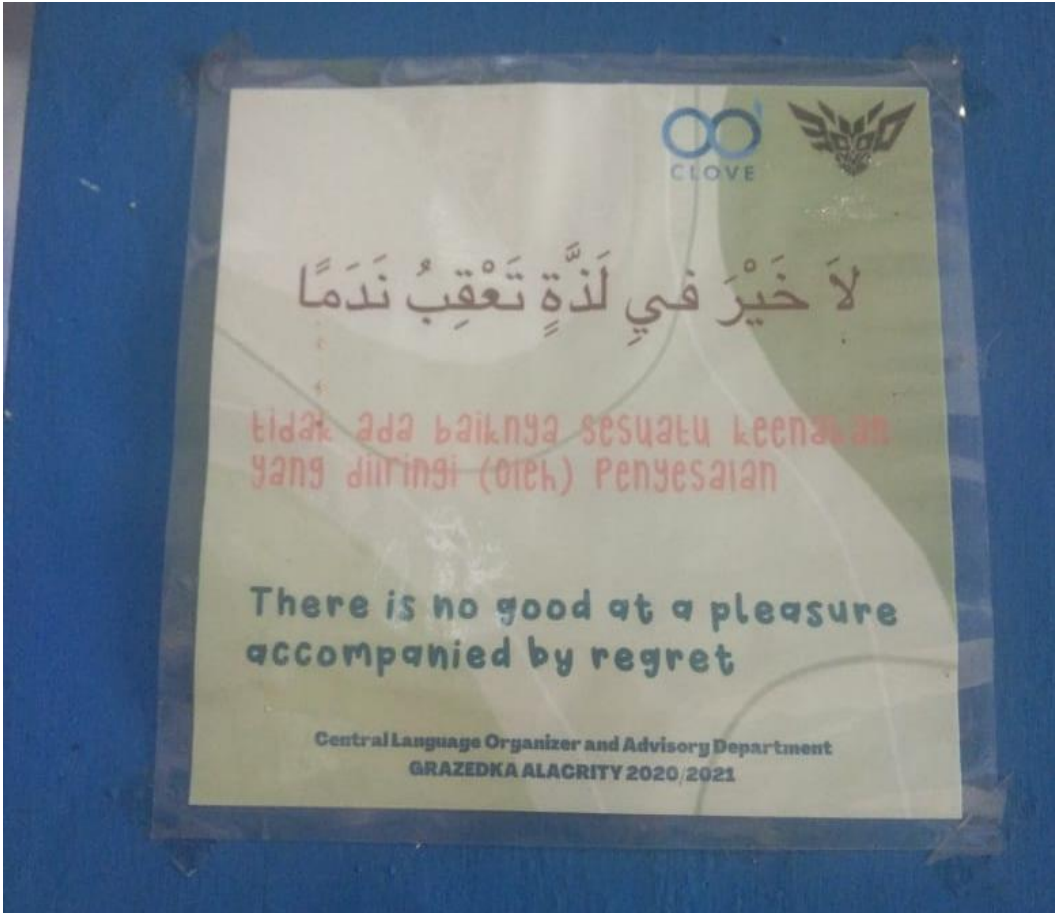 CLOVE
لاَ خَيْرَ فيِ لَذَّةٍ تَعْقِبُ نَدَمًا
tidak ada baiknya sesuatu keenakan
yang diiringi (oleh) Penyesalan
There is no good at a pleasure
accompanied by regret
Central Language Organizer and Advisory Department
GRAZEDKA ALACRITY 2020/2021